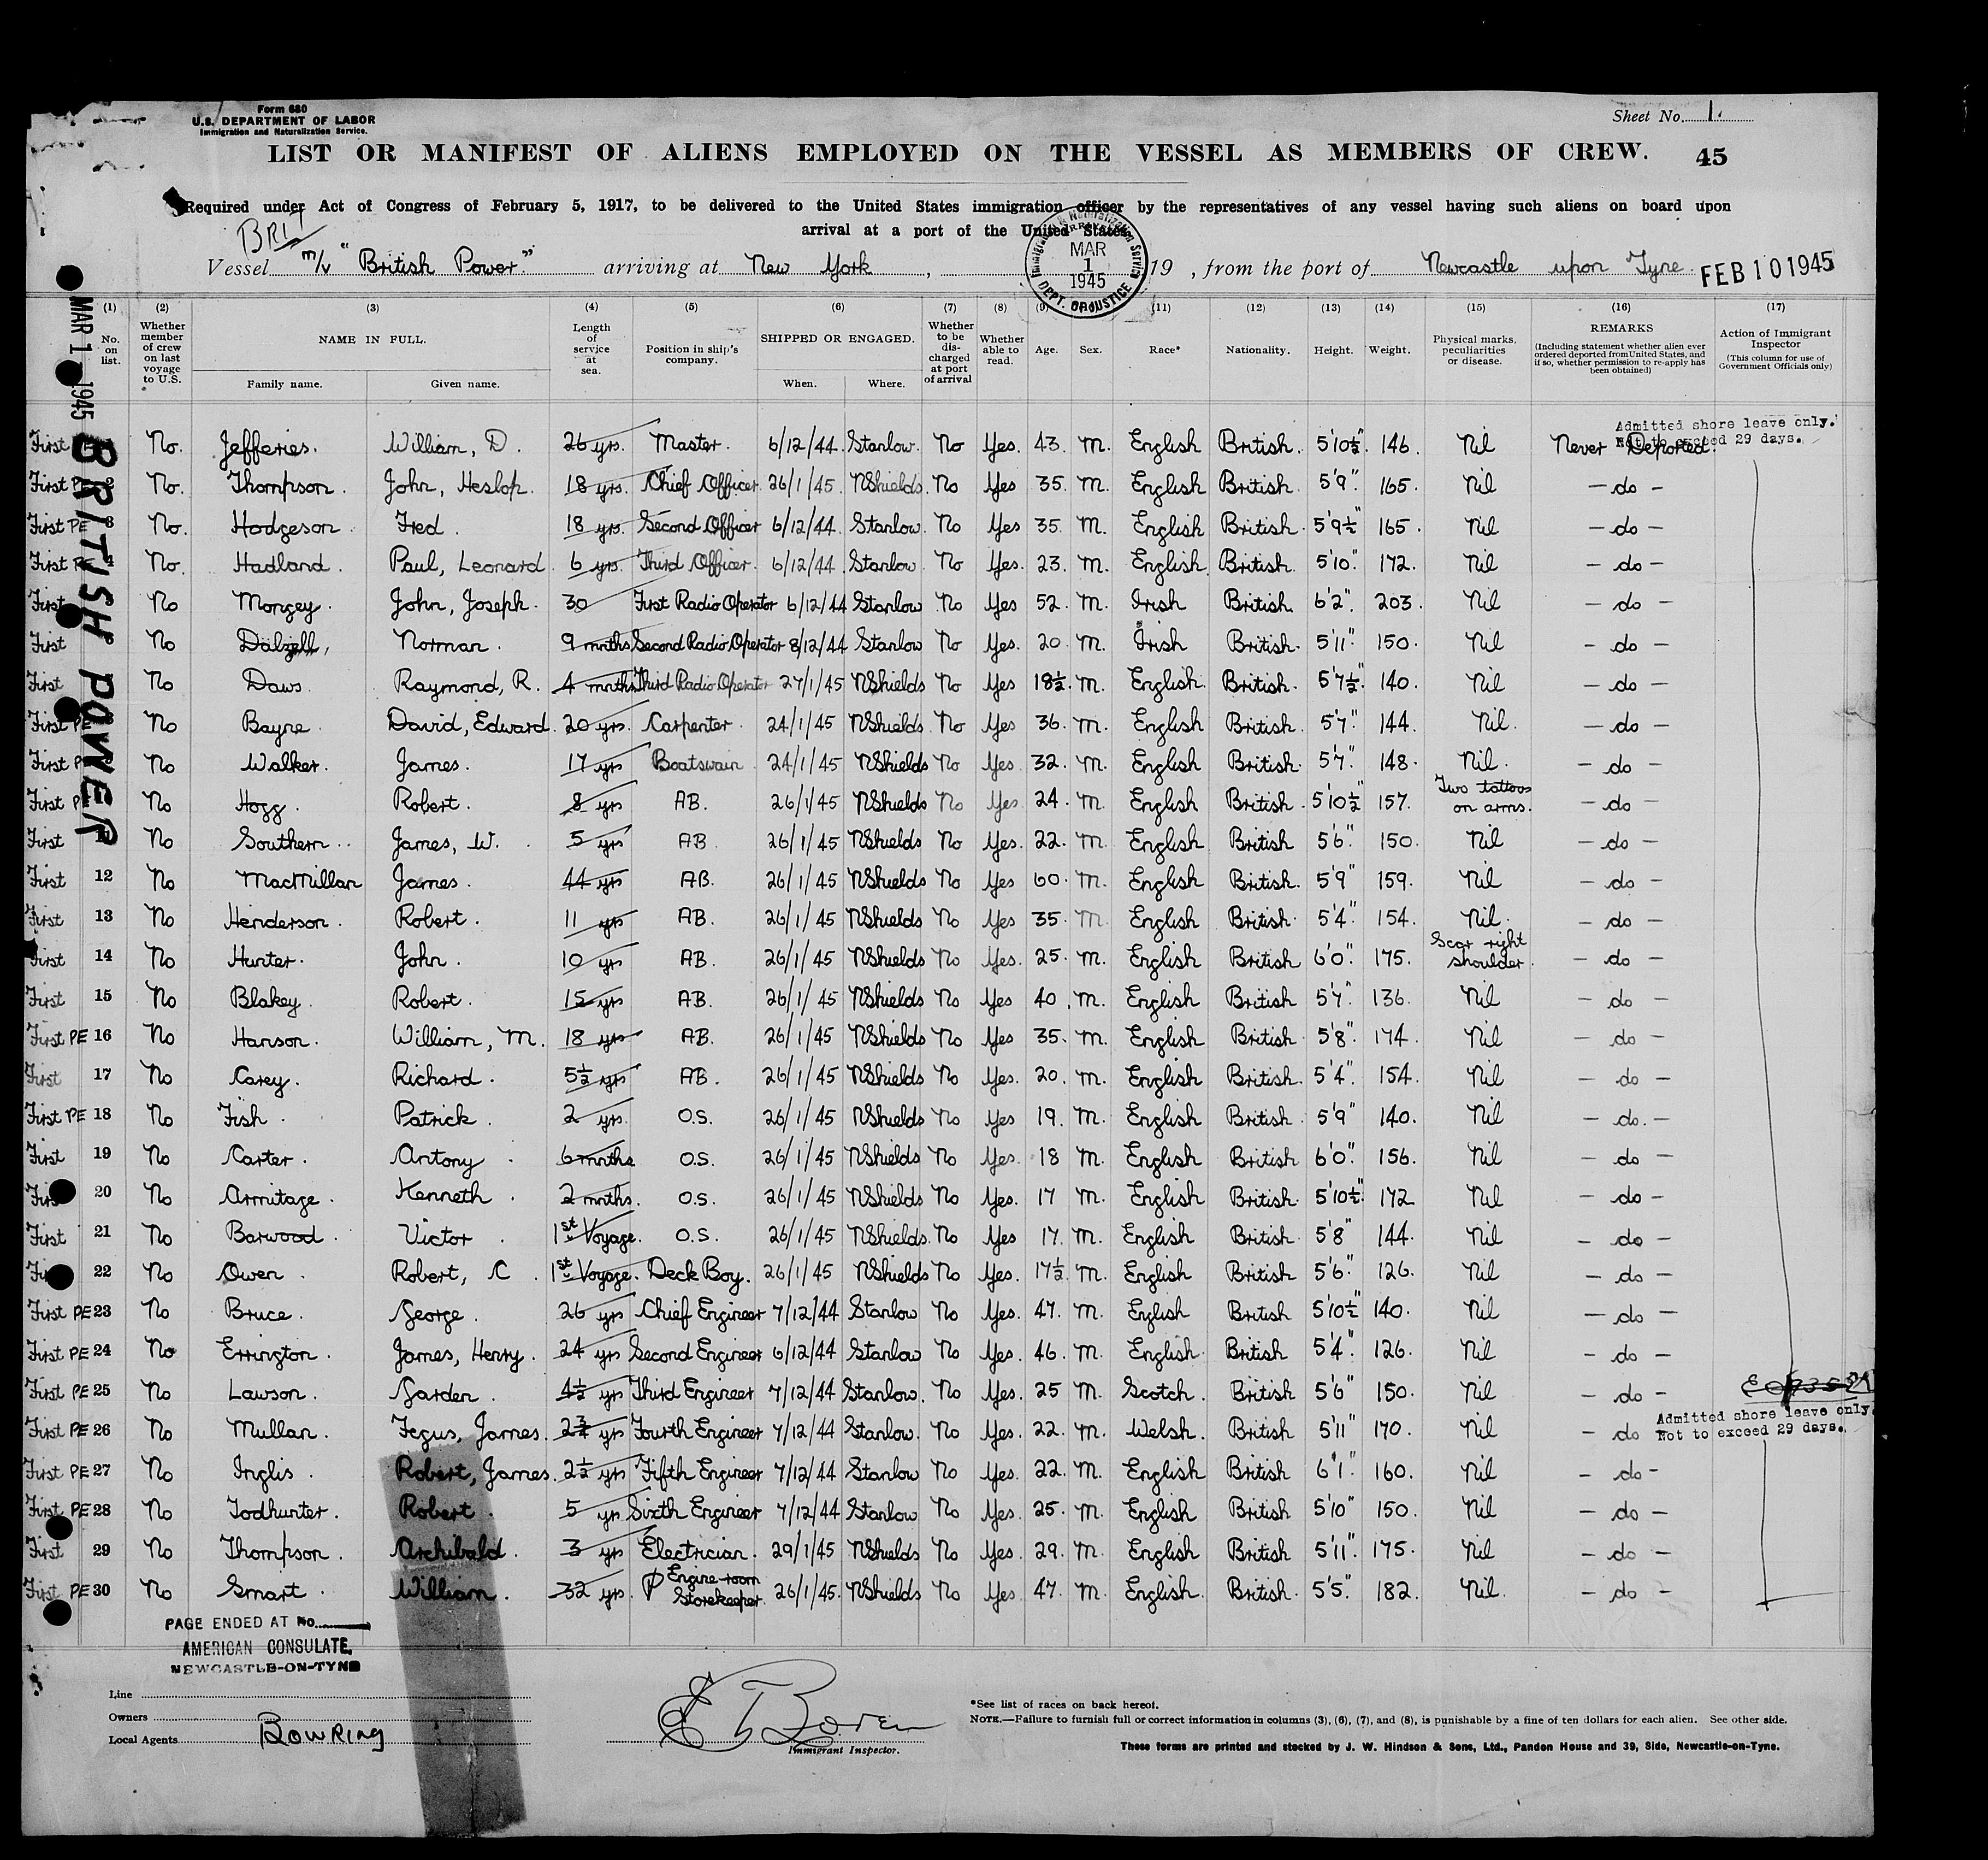 Form 680
U.S. DEPARTMENT OF LABOR
Immigration and Naturalization Service.
Sheet No. 1.
LIST OR MANIFEST OF ALIENS EMPLOYED ON THE VESSEL AS MEMBERS OF CREW. 45
Required under Act of Congress of February 5, 1917, to be delivered to the United States immigration officer by the representatives of any vessel having such aliens on board upon
arrival at a port of the United States
BRIT
Vessel m/v "British Power" arriving at New York, MAR 1 1945 19 , from the port of Newcastle upon Tyne. FEB 10 1945
MAR 1 1945 BRITISH POWER
(1) (2) (3) (4) (5) (6) (7) (8) (9) (11) (12) (13) (14) (15) (16) (17)
No. on list. Whether member of crew on last voyage to U.S. NAME IN FULL. Family name. Given name. Length of service at sea. Position in ship's company. SHIPPED OR ENGAGED. When. Where. Whether to be discharged at port of arrival Whether able to read. Age. Sex. Race* Nationality. Height. Weight. Physical marks, peculiarities or disease. REMARKS (Including statement whether alien ever ordered deported from United States, and if so, whether permission to re-apply has been obtained) Action of Immigrant Inspector (This column for use of Government Officials only)
Admitted shore leave only.
Not to exceed 29 days.
First No. Jefferies. William, D. 26 yrs. Master. 6/12/44. Stanlow. No Yes. 43. M. English British. 5'10½" 146. Nil Never Deported.
First No. Thompson. John, Heslop. 18 yrs. Chief Officer 26/1/45. NShields. No Yes 35. M. English British. 5'9". 165. Nil - do -
First PE 3 No. Hodgeson Fred. 18 yrs. Second Officer 6/12/44. Stanlow. No Yes 35. M. English British. 5'9½" 165. Nil - do -
First No. Hadland. Paul, Leonard. 6 yrs. Third Officer. 6/12/44. Stanlow. No Yes. 23. M. English British. 5'10". 172. Nil - do -
First No Mongey. John, Joseph. 30 First Radio Operator 6/12/44 Stanlow No Yes 52. M. Irish British. 6'2". 203. Nil - do -
First No Dalzell, Norman. 9 mnths Second Radio Operator 8/12/44 Stanlow No Yes. 20. M. Irish British. 5'11". 150. Nil - do -
First No Daws. Raymond, R. 4 mnths Third Radio Operator 27/1/45 NShields No Yes 18½. M. English. British. 5'7½". 140. Nil - do -
First PE No Bayne. David, Edward. 20 yrs. Carpenter. 24/1/45 NShields. No Yes 36. M. English British 5'7". 144. Nil. - do -
First No Walker. James. 17 yrs Boatswain 24/1/45 NShields No Yes 32. M. English British. 5'7". 148. Nil. - do -
First No Hogg. Robert. 8 yrs AB. 26/1/45 NShields No Yes. 24. M. English British. 5'10½" 157. Two tattoos on arms. - do -
First No Southern. James, W. 5 yrs AB 26/1/45 NShields No Yes. 22. M. English British 5'6". 150. Nil - do -
First 12 No MacMillan James. 44 yrs AB. 26/1/45 NShields No Yes 60. M. English British. 5'9" 159. Nil - do -
First 13 No Henderson. Robert. 11 yrs AB. 26/1/45 NShields No Yes 35. M. English British. 5'4". 154. Nil. - do -
First 14 No Hunter. John. 10 yrs AB. 26/1/45 NShields No Yes. 25. M. English British 6'0". 175. Scar right shoulder. - do -
First 15 No Blakey. Robert. 15 yrs AB. 26/1/45 NShields No Yes 40. M. English British 5'7". 136. Nil - do -
First PE 16 No Hanson. William, M. 18 yrs AB. 26/1/45 NShields No Yes 35. M. English British 5'8". 174. Nil - do -
First 17 No Carey. Richard. 5½ yrs AB. 26/1/45 NShields No Yes. 20. M. English British. 5'4". 154. Nil - do -
First PE 18 No Fish. Patrick. 2 yrs. O.S. 26/1/45 NShields No Yes 19. M. English British 5'9" 140. Nil - do. -
First 19 No Carter. Antony 6 mnths O.S. 26/1/45 NShields No Yes. 18 M. English British 6'0". 156. Nil - do -
First 20 No Armitage. Kenneth. 2 mnths. O.S. 26/1/45 NShields No Yes. 17 M. English British. 5'10½" 172 Nil - do -
First 21 No Barwood. Victor 1st Voyage. O.S. 26/1/45 NShields. No Yes 17. M. English British 5'8" 144. Nil - do -
22 No Owen. Robert, C 1st Voyage. Deck Boy. 26/1/45 NShields No Yes. 17½. M. English British 5'6". 126. Nil - do -
First PE 23 No Bruce. George. 26 yrs Chief Engineer 7/12/44 Stanlow No Yes. 47. M. English British 5'10½" 140. Nil - do -
First PE 24 No Errington. James, Henry. 24 yrs Second Engineer 6/12/44 Stanlow No Yes. 46. M. English British 5'4". 126. Nil - do -
First PE 25 No Lawson. Garden. 4½ yrs Third Engineer 7/12/44 Stanlow. No Yes. 25 M. Scotch. British 5'6" 150. Nil - do -
Admitted shore leave only
Not to exceed 29 days.
First PE 26 No Mullan. Fegus, James. 2¾ yrs Fourth Engineer 7/12/44 Stanlow. No Yes. 22. M. Welsh. British 5'11" 170. Nil - do
First PE 27 No Inglis. Robert, James. 2½ yrs Fifth Engineer 7/12/44 Stanlow No Yes. 22. M. English British 6'1". 160. Nil - do -
First PE 28 No Todhunter. Robert. 5 yrs Sixth Engineer 7/12/44 Stanlow No Yes. 25. M. English British 5'10" 150. Nil - do -
First 29 No Thompson. Archibald. 3 yrs Electrician. 29/1/45 NShields No Yes. 29. M. English British 5'11". 175. Nil - do -
First PE 30 No Smart. William. 32 yrs. Engine-room Storekeeper. 26/1/45. NShields No Yes 47. M. English. British. 5'5". 182. Nil. - do -
PAGE ENDED AT No.
AMERICAN CONSULATE,
NEWCASTLE-ON-TYNE
Line
Owners
Local Agents Bowring
Immigrant Inspector.
*See list of races on back hereof.
NOTE.—Failure to furnish full or correct information in columns (3), (6), (7), and (8), is punishable by a fine of ten dollars for each alien. See other side.
These forms are printed and stocked by J. W. Hindson & Sons, Ltd., Pandon House and 39, Side, Newcastle-on-Tyne.